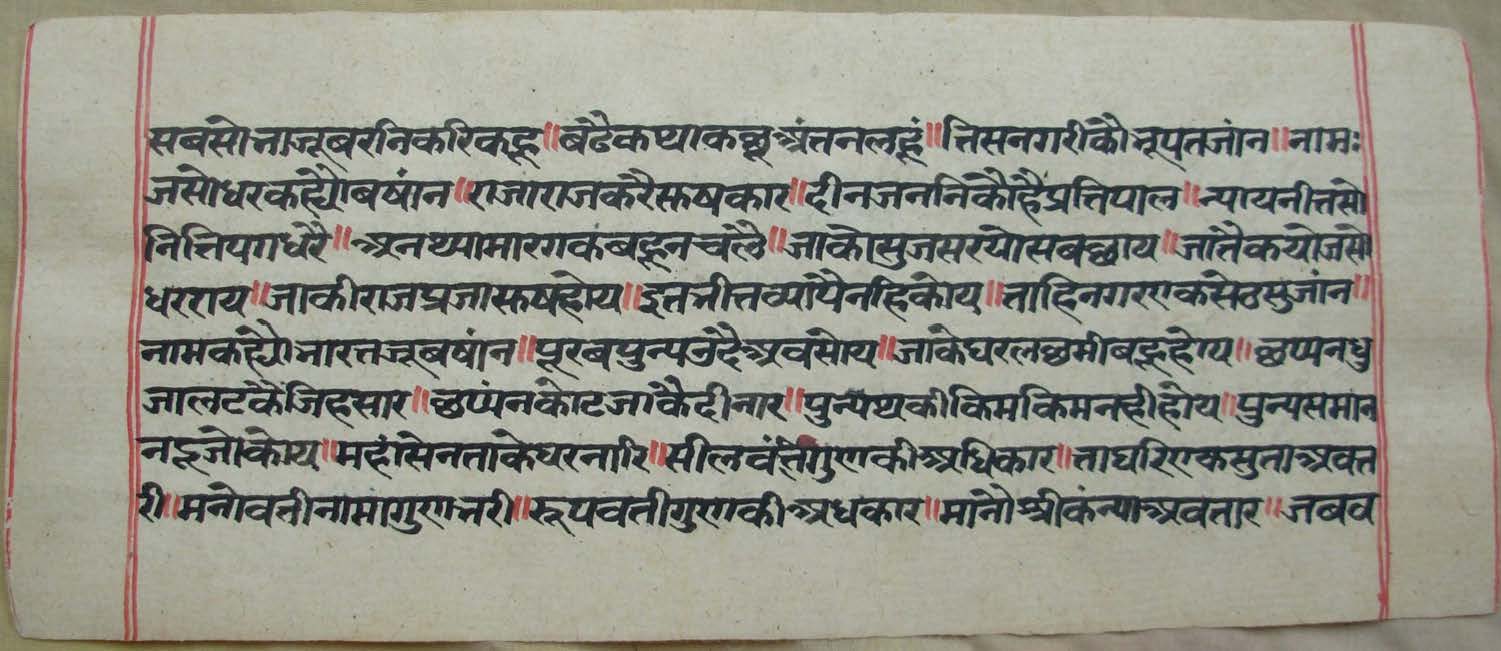 सबसोभाजूबरनिकरिकहू॥बंढैकथाकछूअंतनलहूं॥तिसनगरीकौभूपतजांन॥नामः
जसोधरकह्यौबषांन॥राजाराजकरैसुषकार॥दीनजननिकौहैप्रतिपाल॥न्यायनीतसो
नितिपगधरै॥अनथ्यामारगकबहूनचलै॥जाकोसुजसरयोसबछाय॥जातैकयोजसो
धरराय॥जाकीराजप्रजासुषहोय॥इतभीतव्यापैनहिकोय॥ताहिनगरएकसेठसुजांन॥
नामकह्यौभारतजूबषांन॥पूरबपुन्यउदैअवसोय॥जाकेघरलछमीबहूहोय॥छप्पनधु
जालटकैजिहसार॥छप्पंनकोटजाकैदीनार॥पुन्यथकीकिमकिमनहीहोय॥पुन्यसमान
नदूजोकोय॥महांसेनताकेघरनारि॥सीलवंतीगुणकीअधिकार॥ताघरिएकसुताअवत
री॥मनोवतीनामागुणभरी॥रूपवतीगुणकीअधकार॥मानोश्रीकंन्याअवतार॥जबव